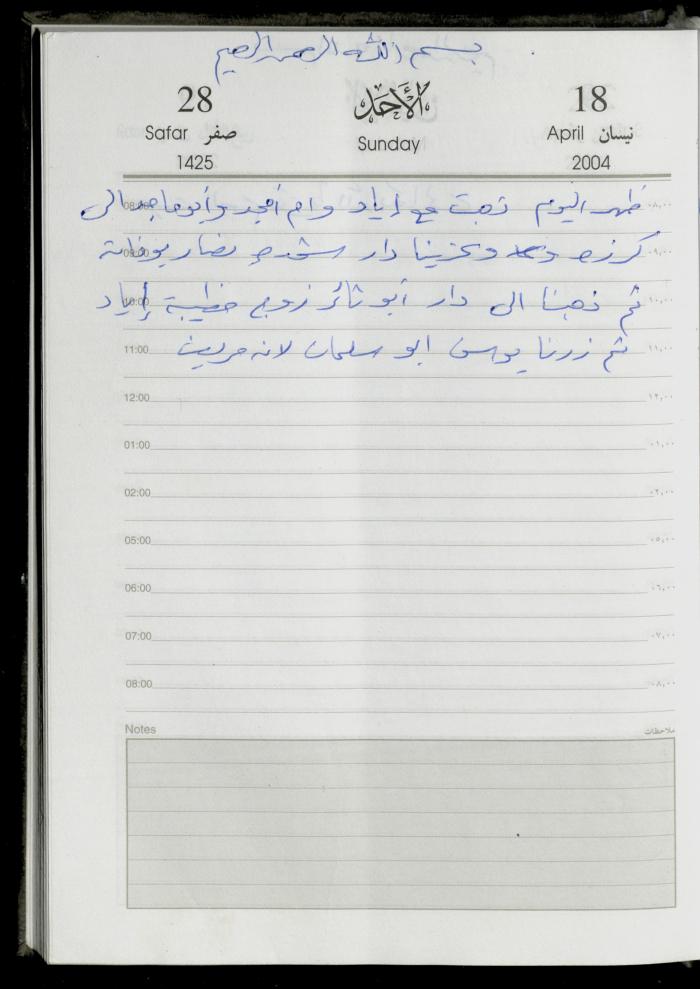 بسم الله الرحمن الرحيم
28 الأحد 18
Safar صفر Sunday April نيسان
1425 2004
08:00 ظهر اليوم ذهبت مع إياد وام أمجد وأبو ماجد الى ٠٨,٠٠
09:00 كرزه وعزينا دار بوفاة ٠٩,٠٠
10:00 ثم ذهبنا الى دار أبو ثائر زوج خطيبة إياد ١٠,٠٠
11:00 ثم زرنا يوسف ابو سلمان لانه مريض ١١,٠٠
12:00 ١٢,٠٠
01:00 ٠١,٠٠
02:00 ٠٢,٠٠
05:00 ٠٥,٠٠
06:00 ٠٦,٠٠
07:00 ٠٧,٠٠
08:00 ٠٨,٠٠
Notes ملاحظات